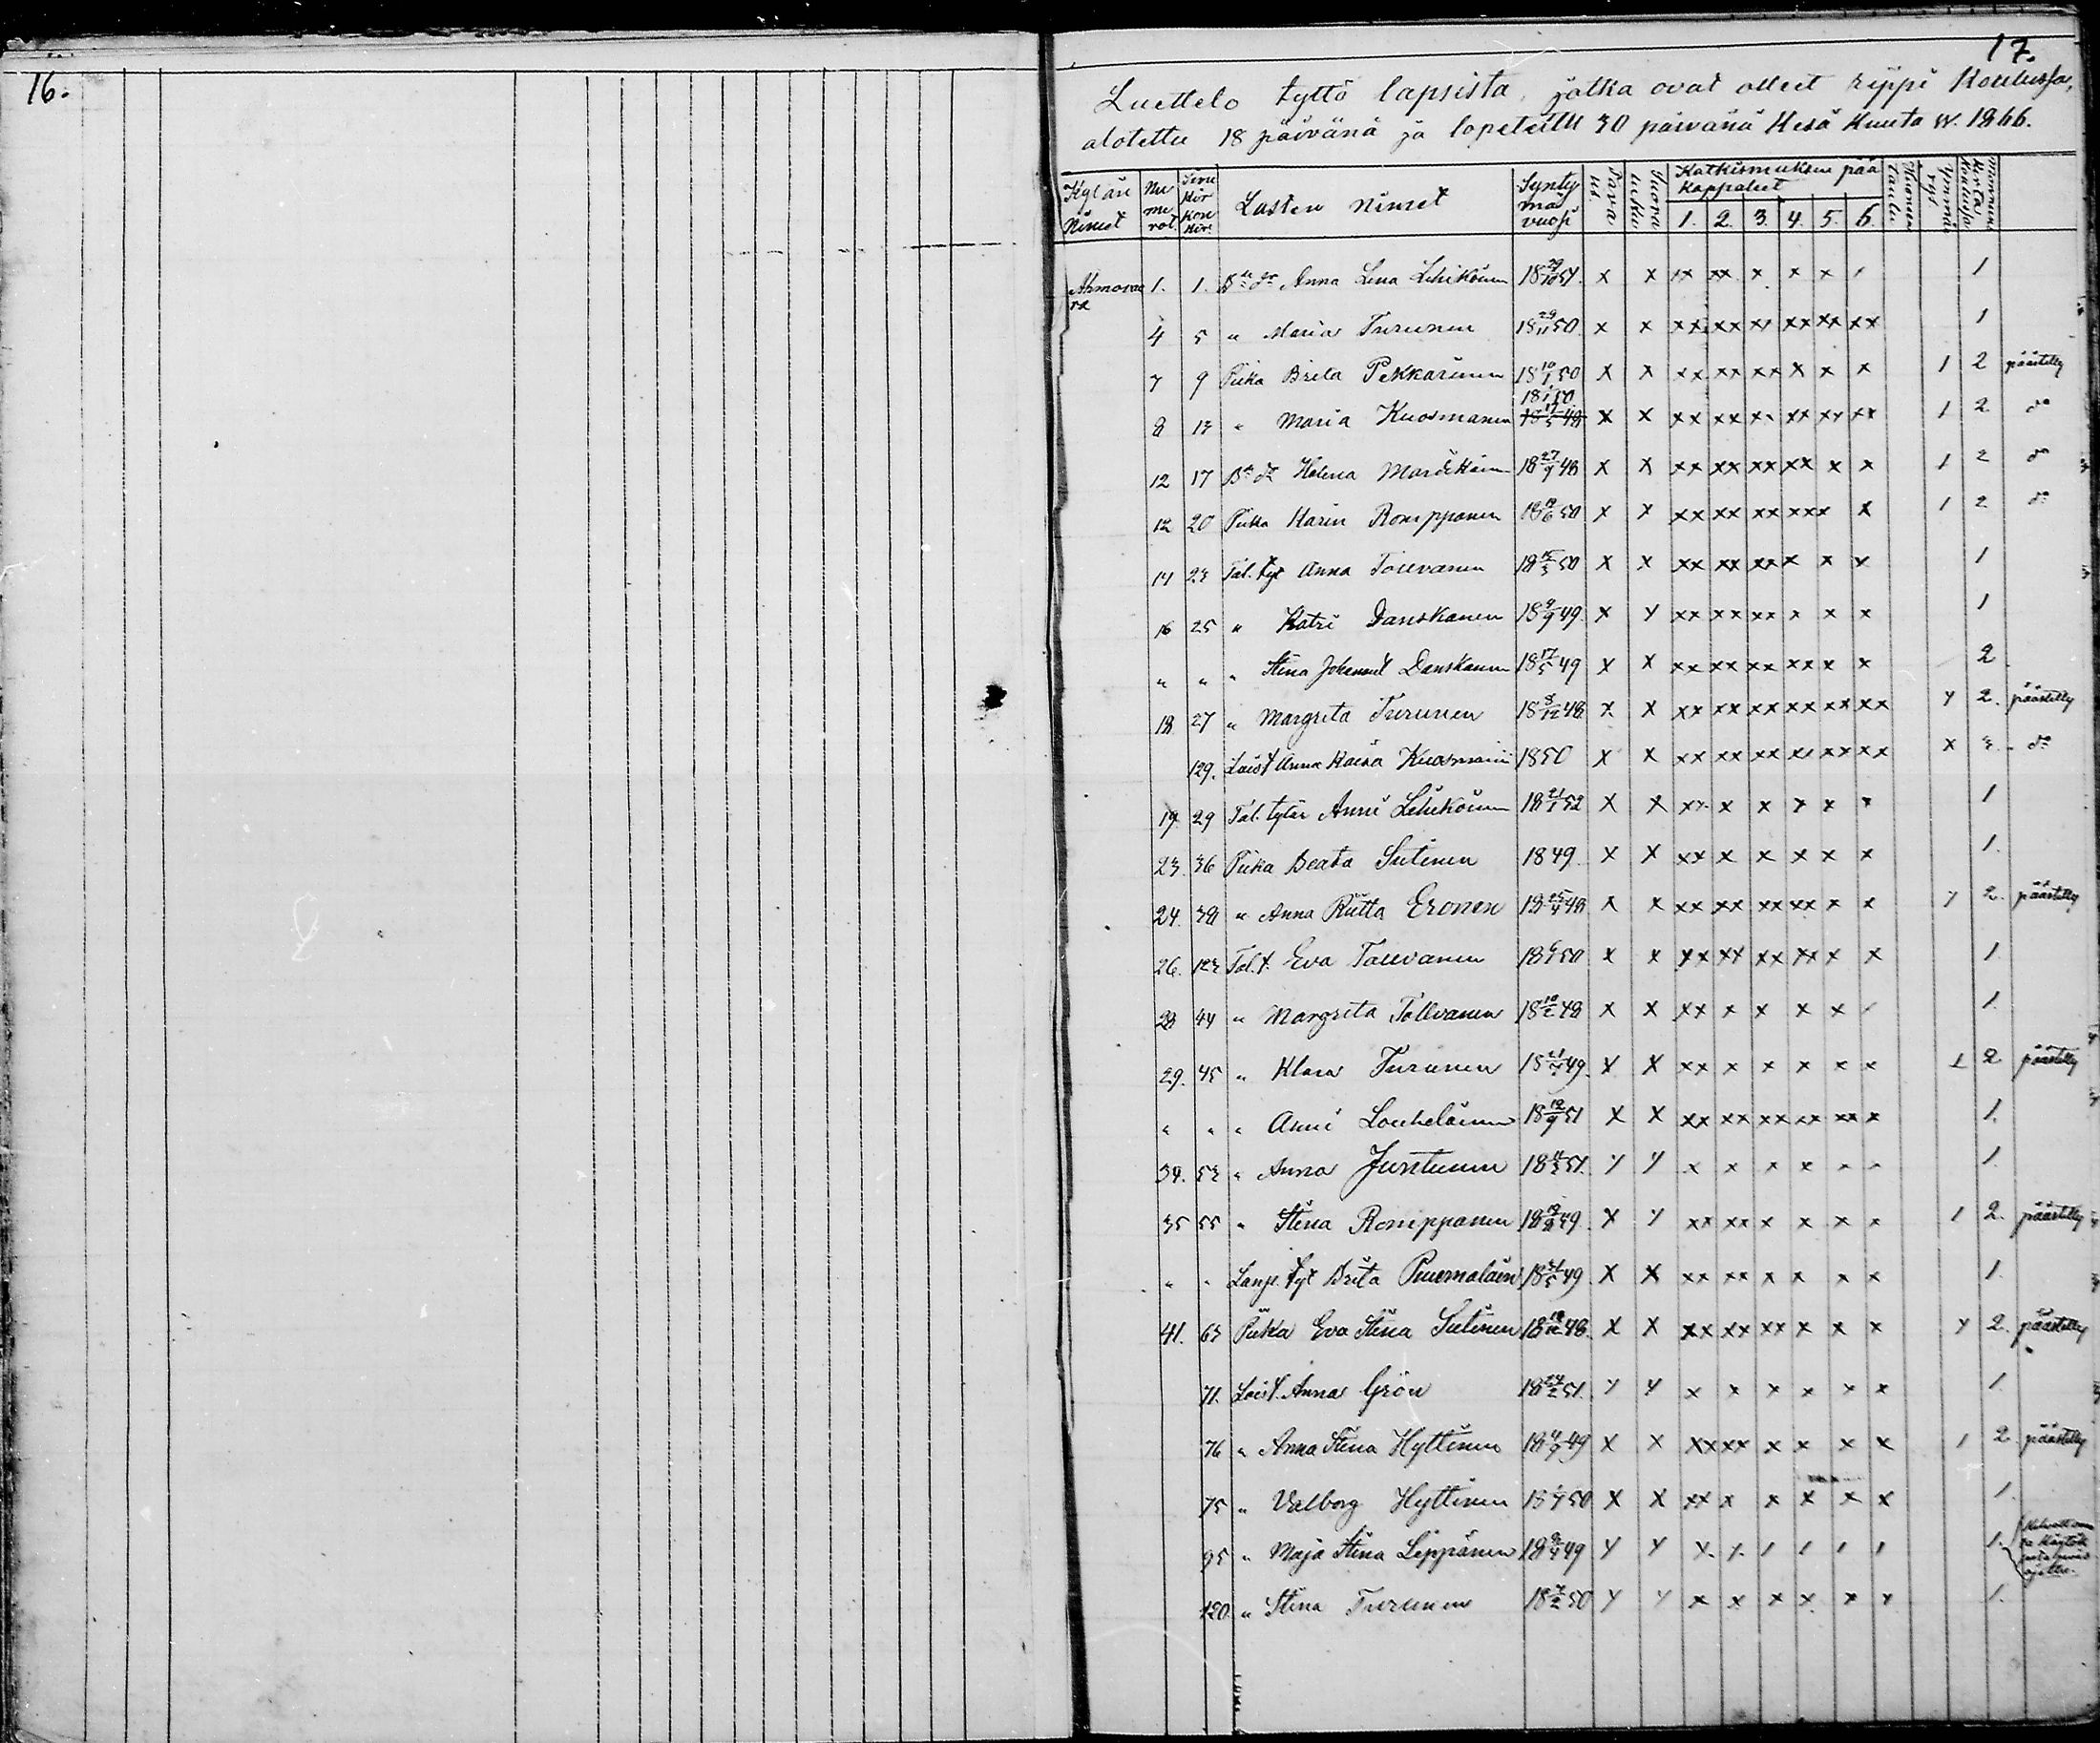 16.
17.
Luettelo tyttö lapsista, jotka ovat olleet rippi koulussa,
alotettu 18 päivänä ja lopetettu 30 päivänä Kesä Kuuta w. 1866.
Kylän Nimet | Nu me rot. | Sivu Kir kon kir. | Lasten nimet | Synty mä vuosi | Tavaus | Sisä luku | Katkismuksen pää kappaleet 1. 2. 3. 4. 5. 6. | Huonen taulu | Ymmärrys | Monmes kerta koulussa
Ahmovaara 1. 1. Bde dr Anna Lena Lehikoinen 18 29/10 51. x x xx xx x x x / 1
4 5 " Maria Turunen 18 29/11 50. x x xx xx xx xx xx xx 1
7 9 Piika Brita Pekkarinen 18 10/1 50 x x xx xx xx x x x 1 2 päästetty
8 13 " Maria Kuosmanen x x xx xx xx xx xx xx 1 2 do
12 17 Bde dr Helena Mardikain 18 27/9 48 x x xx xx xx xx x x 1 2 do
12 20 Piika Karin Romppanen 18 19/6 50 x x xx xx xx xx x x 1 2 do
14 23 Tal. tyt Anna Tolvanen 18 50 x x xx xx xx x x x 1
16 25 " Katri Danskanen 18 9/9 49. x x xx xx xx x x x 1
" " " Stina Johanna Danskanen 18 17/5 49 x x xx xx xx xx x x 2
18 27 " Margreta Turunen 18 3/12 48 x x xx xx xx xx xx xx x 2. päästetty
129. Loist Anna Kaisa Kuosmain 1850 x x xx xx xx xx xx xx x 3 do
19 29 Tal. tytär Anni Lehikoinen 18 21/1 52 x x xx x x x x x 1
23. 36 Piika Beata Sutinen 1849. x x xx x x x x x 1.
24. 38 " Anna Riitta Eronen 18 25/4 48 x x xx xx xx xx x x x 2. päästetty
26. 123 Tal. t. Eva Tolvanen 18 50 x x xx xx xx xx x x 1
28 44 " Margreta Tolvanen 18 10/2 48 x x xx x x x x / 1.
29. 45 " Klara Turunen 18 49. x x xx x x x x x 1 2 päästetty
" " " Anni Louhelainen 18 12/9 51 x x xx xx xx xx xx x 1.
34. 53 " Anna Juntunen 18 51. x x x x x x x x 1.
35 55 " Stina Romppanen 18 49. x x xx xx x x x x 1 2. päästetty
" " Lamp. tyt Brita Puumalain 18 31/5 49. x x xx xx x x x x 1.
41. 63 Piika Eva Stina Sutinen 18 48. x x xx xx xx x x x x 2. päästetty
71. Loist. Anna Grön 18 24/2 51. x x x x x x x x 1
76 " Anna Stina Hyttinen 18 49 x x xx xx x x x x 1 2 päästetty
75 " Valborg Hyttinen 18 50 x x xx x x x x x 1.
95 " Maja Stina Leppänen 18 49 x x x. x. / / / / 1.
120 " Stina Turunen 18 50 x x x x x x x x 1.